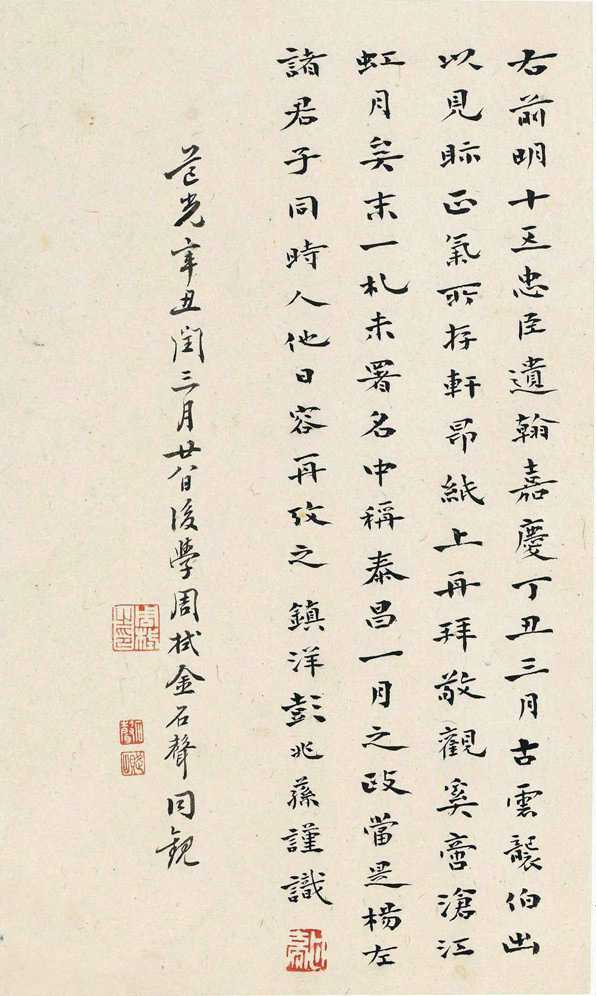 右前明十五忠臣遺翰嘉慶丁丑三月古雲襲伯出
以見眎正氣所存軒昂紙上再拜敬觀奚啻滄江
虹月矣末一札未署名中稱泰昌一月之政當是楊左
諸君子同時人他日容再攷之鎮洋彭兆蓀謹識
道光辛丑閏三月廿八日後學周栻金石聲同觀